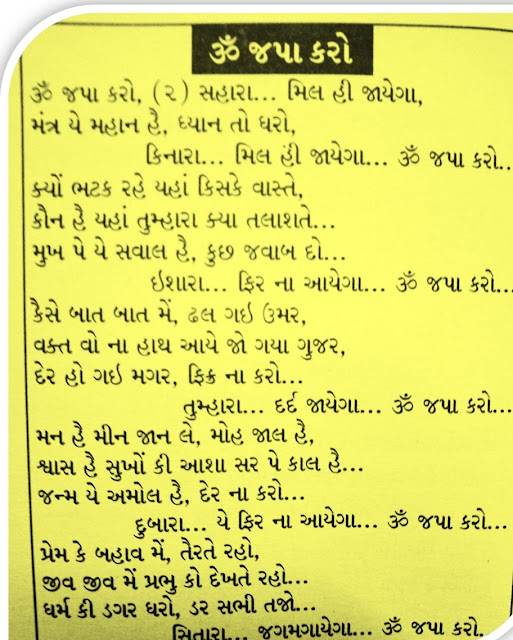 ૐ જપા કરો
ૐ જપા કરો, (૨) સહારા... મિલ હી જાયેગા,
મંત્ર યે મહાન હૈ, ધ્યાન તો ધરો,
કિનારા... મિલ હીં જાયેગા... ૐ જપા કરો...
ક્યોં ભટક રહે યહાં કિસકે વાસ્તે,
કૌન હૈ યહાં તુમ્હારા ક્યા તલાશતે...
મુખ પે યે સવાલ હૈ, કુછ જવાબ દો...
ઇશારા... ફિર ના આયેગા... ૐ જપા કરો...
કૈસે બાત બાત મેં, ઢલ ગઇ ઉમર,
વક્ત વો ના હાથ આયે જો ગયા ગુજર,
દેર હો ગઇ મગર, ફિક્ર ના કરો...
તુમ્હારા... દર્દ જાયેગા... ૐ જપા કરો...
મન હૈ મીન જાન લે, મોહ જાલ હૈ,
શ્વાસ હૈ સુખોં કી આશા સર પે કાલ હૈ...
જન્મ યે અમોલ હૈ, દેર ના કરો...
દુબારા... યે ફિર ના આયેગા... ૐ જપા કરો...
પ્રેમ કે બહાવ મેં, તૈરતે રહો,
જીવ જીવ મેં પ્રભુ કો દેખતે રહો...
ધર્મ કી ડગર ધરો, ડર સભી તજો...
સિતારા... જગમગાયેગા... ૐ જપા કરો.